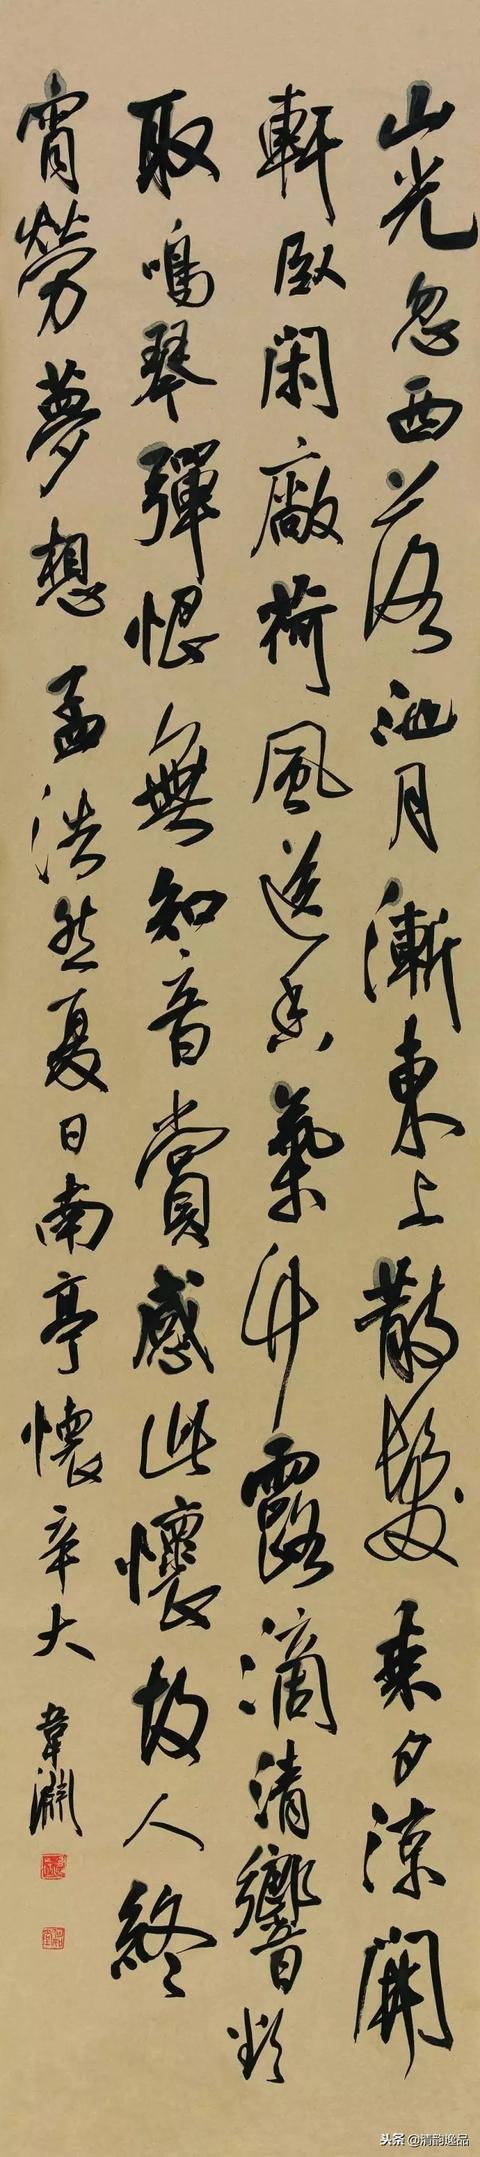 山光忽西落池月漸東上散髮乘夕涼開
軒臥閑敞荷風送香氣竹露滴清響欲
取鳴琴彈恨無知音賞感此懷故人終
宵勞夢想 孟浩然夏日南亭懷辛大 韋淵
头条@清韵逸品